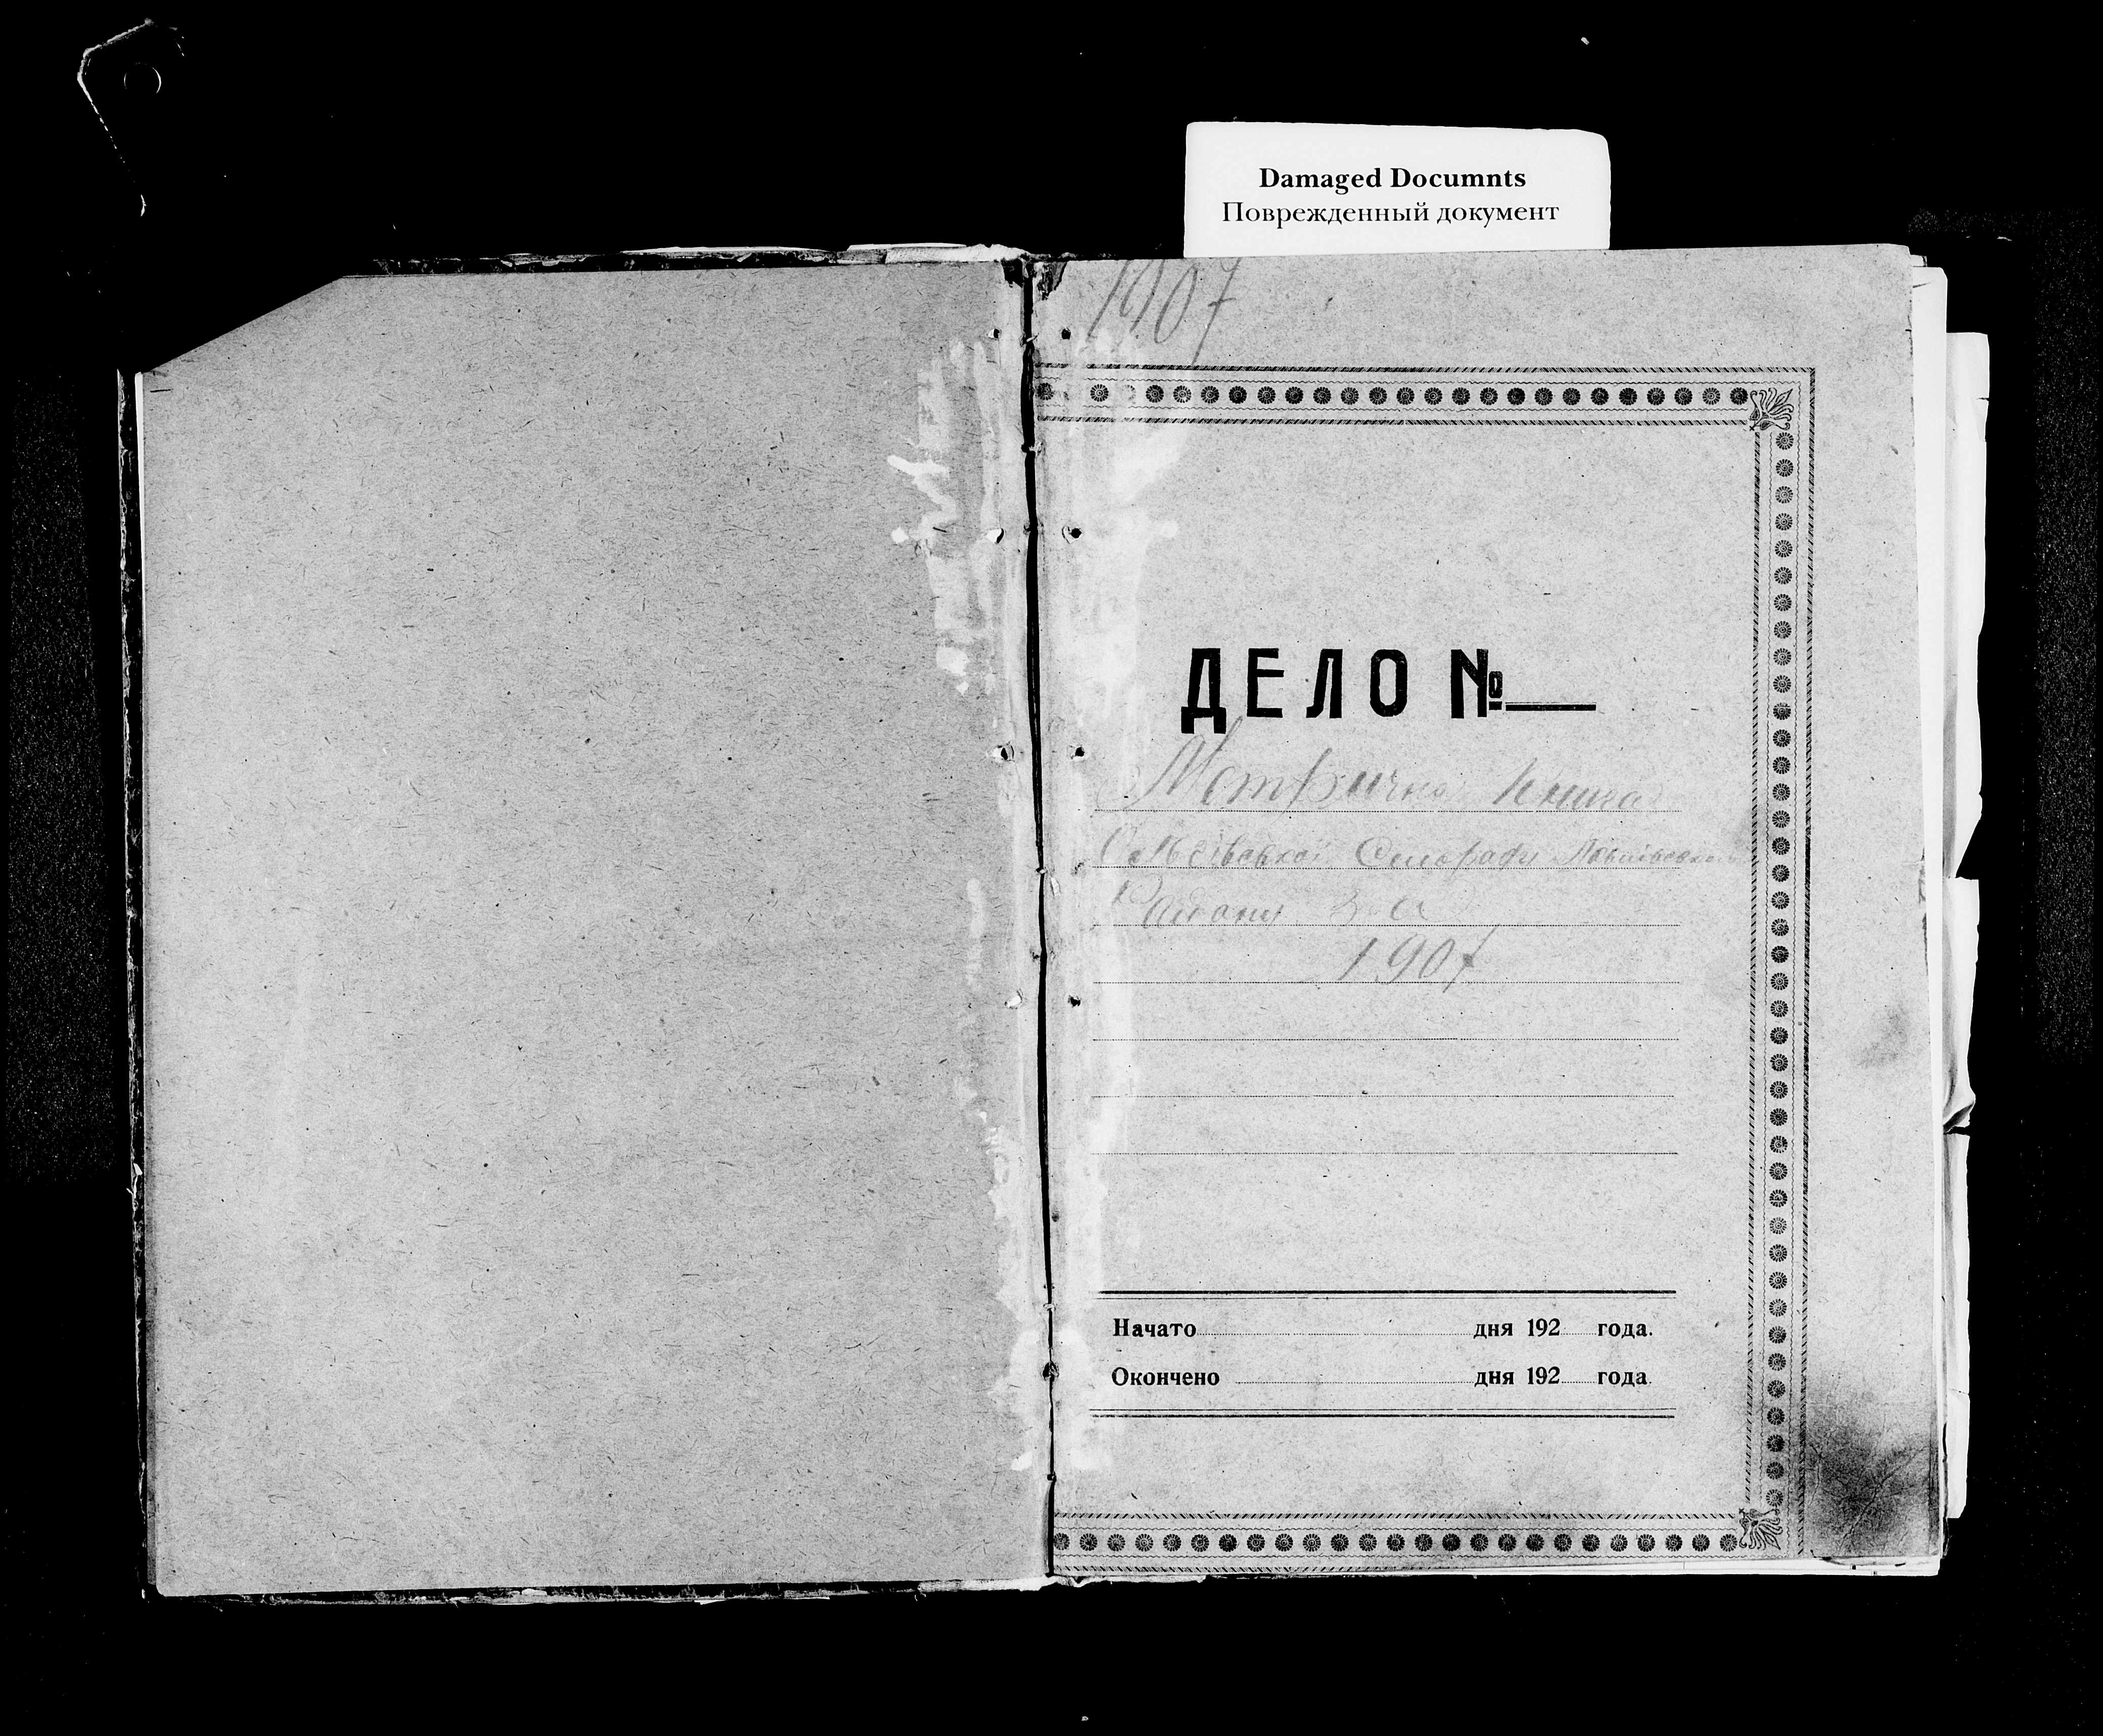 Damaged Documnts
Поврежденный документ
1907
ДЕЛО №
Метрична Книга
Сельради
Району За
1907
Начато дня 192 года.
Окончено дня 192 года.